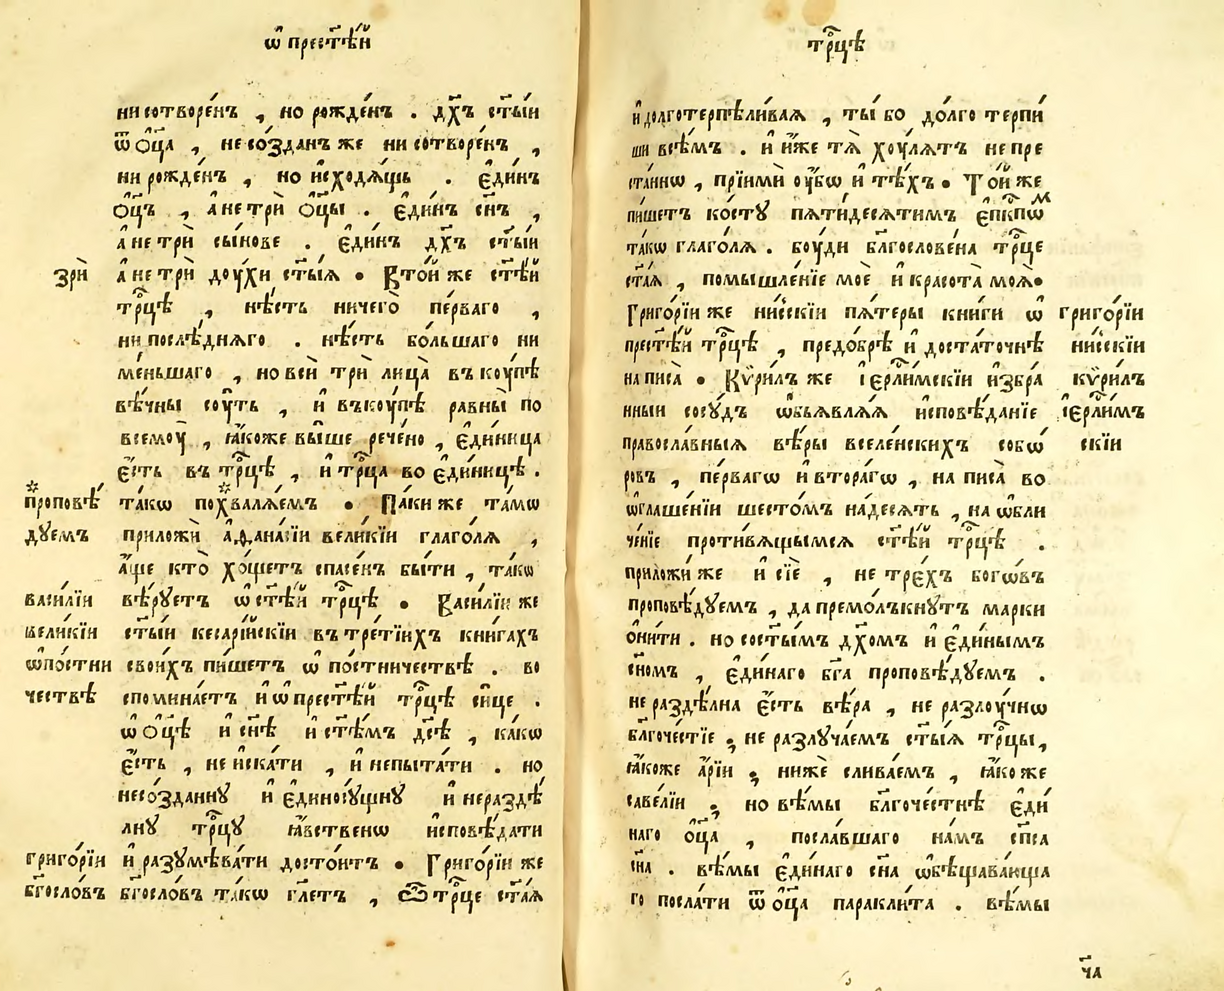 ѡ҆ прест҃ѣ́й
ни сотворе́нъ , но рожде́нъ . дх҃ъ ст҃ы́й
ѿ ѻ҆ц҃а̀ , не со́зданъ же ни сотворе́нъ ,
ни рожде́нъ , но и҆сходѧ́щь . є҆ди́нъ
ѻ҆ц҃ъ , а҆ не трѝ ѻ҆ц҃ы̀ . є҆ди́нъ сн҃ъ ,
а҆ не трѝ сы́нове . є҆ди́нъ дх҃ъ ст҃ы́й
зрѝ
а҆ не трѝ доу́хи ст҃ы́ѧ • Вто́й же ст҃ѣ́й
трⷪ҇цѣ , нѣ́сть ничего̀ пе́рваго ,
ни послѣ́днѧго . нѣ́сть бо́льшаго ни
ме́ньшаго , но всѝ трѝ лица̀ въ коу́пѣ
вѣ́чны соу́ть , и҆ въкоу́пѣ равны̀ по
всемоу̀ , ꙗ҆́коже вы́ше рече́но , є҆дини́ца
є҆́сть въ трⷪ҇цѣ , и҆ трⷪ҇ца во є҆дини́цѣ .
проповѣ́
та́кѡ похвалѧ́емъ • Па́ки же та́мѡ
дуемъ
приложѝ а҆ѳана́сїй вели́кїй глаго́лѧ ,
а҆́ще кто̀ хо́щетъ спасе́нъ бы́ти , та́кѡ
васи́лїй
вѣ́руетъ ѡ҆ ст҃ѣ́й трⷪ҇цѣ • Васи́лїй же
вели́кїй
ст҃ы́й кесарі́йскїй въ тре́тїихъ кни́гахъ
ѡ҆по́стни
свои́хъ пи́шетъ ѡ҆ по́стничествѣ . во
чествѣ
спомина́етъ и҆ ѡ҆ прест҃ѣ́й трⷪ҇цѣ си́це .
ѡ҆ ѻ҆ц҃ѣ и҆ сн҃ѣ и҆ ст҃ѣ́мъ дс҃ѣ , ка́кѡ
є҆́сть , не и҆ска́ти , и҆ непыта́ти . но
несо́зданну и҆ є҆диносу́щну и҆ неразде́
лну трⷪ҇цу ꙗ҆́вственѡ и҆сповѣ́дати
григо́рїй
и҆ разумѣва́ти досто́итъ • Григо́рїй же
бг҃осло́въ
бг҃осло́въ та́кѡ гл҃етъ , Ѽ трⷪ҇це ст҃а́ѧ
трⷪ҇цѣ
и҆ долготерпѣли́ваѧ , ты́ бо до́лго терпи́
ши всѣ́мъ . и҆ и҆́же тѧ̀ хоу́лѧтъ непре
ста́ннѡ , прїимѝ оу҆́бѡ и҆ тѣ́хъ • То́й же
пи́шетъ ко́сту пѧти́десѧтимъ є҆пⷭ҇кпѡⷨ
та́кѡ глаго́лѧ . боу́ди блг҃ослове́на трⷪ҇це
ст҃а́ѧ , помышле́нїе моѐ и҆ красота̀ моѧ̀ •
Григо́рїй же ни́сскїй пѧ́теры кни́ги ѡ҆
григо́рїй
прест҃ѣ́й трⷪ҇цѣ , предо́брѣ и҆ доста́точнѣ
ни́сскїй
написа̀ • Кѷ́рилъ же і҆ерⷭ҇ли́мскїй и҆збра́
кѷ́рилъ
нный сосу́дъ ѡ҆бьѧвлѧ́ѧ и҆сповѣ́данїе
і҆ерⷭ҇ли́мъ
правосла́вныѧ вѣ́ры вселе́нскихъ собѡ́
скїй
ровъ , пе́рвагѡ и҆ втора́гѡ , написа̀ во
ѡ҆глаше́нїи шесто́мъ на́десѧть , на ѡ҆бли
че́нїе проти́вѧщымсѧ ст҃ѣ́й трⷪ҇цѣ .
приложи́ же и҆ сїѐ , не тре́хъ бого́въ
проповѣ́дуемъ , да премо́лъкнутъ марки
ѻ҆ни́ти . но со ст҃ы́мъ дх҃омъ и҆ є҆ди́нымъ
сн҃омъ , є҆ди́наго бг҃а проповѣ́дуемъ .
не раздѣ́лна є҆́сть вѣ́ра , не разлоу́чнѡ
благоче́стїе , не разлуча́емъ ст҃ы́ѧ трⷪ҇цы,
ꙗ҆́коже а҆́рїй , нижѐ слива́емъ , ꙗ҆́коже
саве́лїй , но вѣ́мы благоче́стнѣ є҆ди́
наго ѻ҆ц҃а̀ , посла́вшаго на́мъ сп҃са
сн҃а . вѣ́мы є҆ди́наго сн҃а ѡ҆бѣщава́юща
го посла́ти ѿ ѻ҆ц҃а̀ паракли́та . вѣ́мы
ч҃а